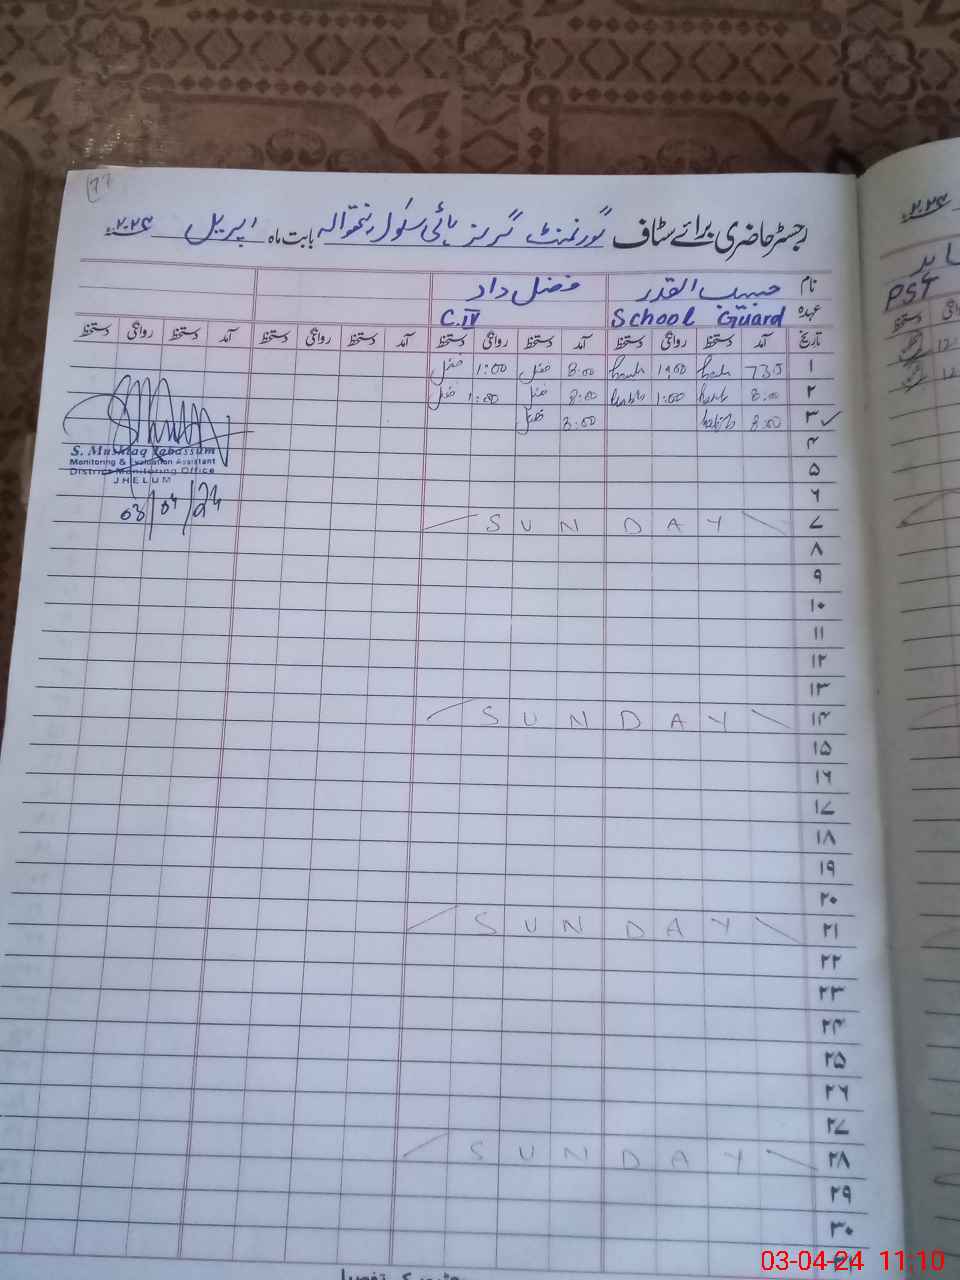 رجسٹر حاضری برائے سٹاف گورنمنٹ گرلز ہائی سکول بابت ماہ اپریل ۲۰۲۴ء
نام حبیب القدر فضل داد
عہدہ School Guard C.IV
تاریخ آمد دستخط روانگی دستخط آمد دستخط روانگی دستخط آمد دستخط روانگی دستخط آمد دستخط روانگی دستخط
۱ 730 1:00 8:00 فضل 1:00 فضل
۲ 8:00 1:00 8:00 فضل 1:00 فضل
۳ 8:00 8:00 فضل
۴
S. Mushtaq Tabassum
Monitoring & Evaluation Assistant
District Monitoring Office
JHELUM
03/04/24
۵
۶
۷ SUNDAY
۸
۹
۱۰
۱۱
۱۲
۱۳
۱۴ SUNDAY
۱۵
۱۶
۱۷
۱۸
۱۹
۲۰
۲۱ SUNDAY
۲۲
۲۳
۲۴
۲۵
۲۶
۲۷
۲۸ SUNDAY
۲۹
۳۰
۲۰۲۴ء
PST
دستخط
03-04-24 11:10